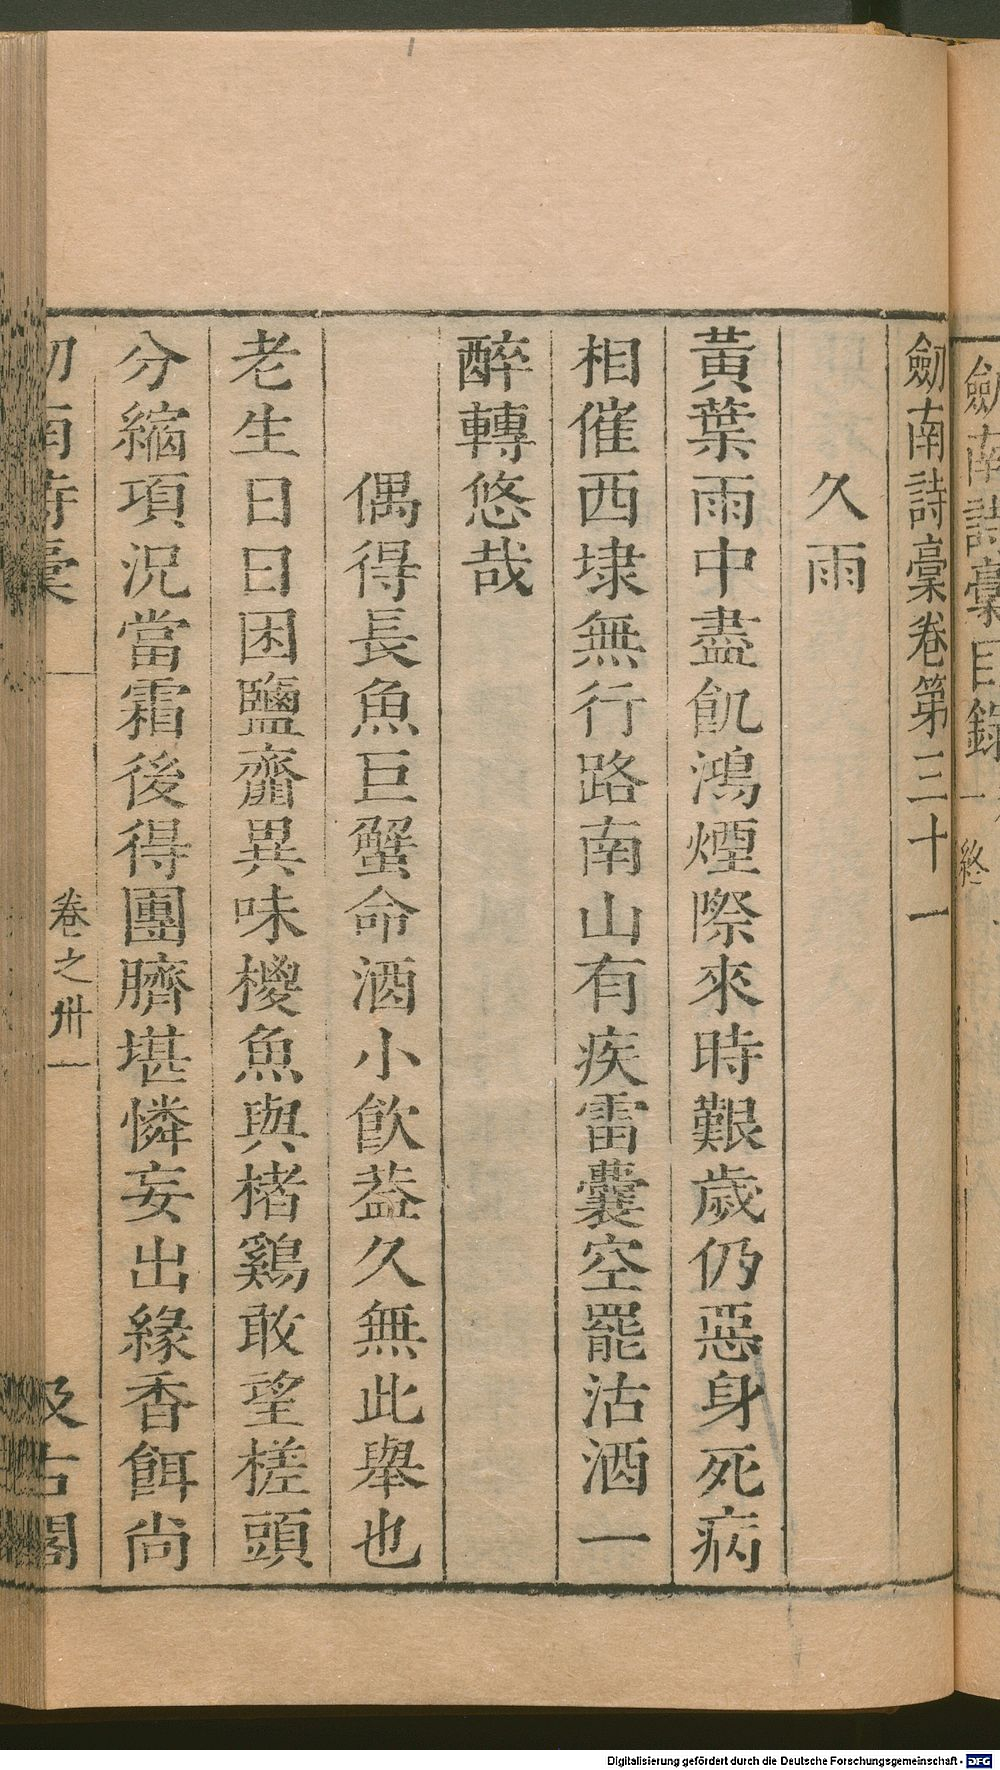 劎南詩藁目錄 終
劎南詩藁卷第三十一
久雨
黃葉雨中盡飢鴻煙際來時艱歲仍惡身死病
相催西埭無行路南山有疾雷囊空罷沽酒一
醉轉悠哉
偶得長魚巨蟹命酒小飲葢久無此舉也
老生日日困鹽齏異味㮶魚與楮鷄敢望槎頭
分縮項況當霜後得團臍堪憐妄出緣香餌尚
劎南詩藁 卷之卅一 汲古閣
Digitalisierung gefördert durch die Deutsche Forschungsgemeinschaft - DFG